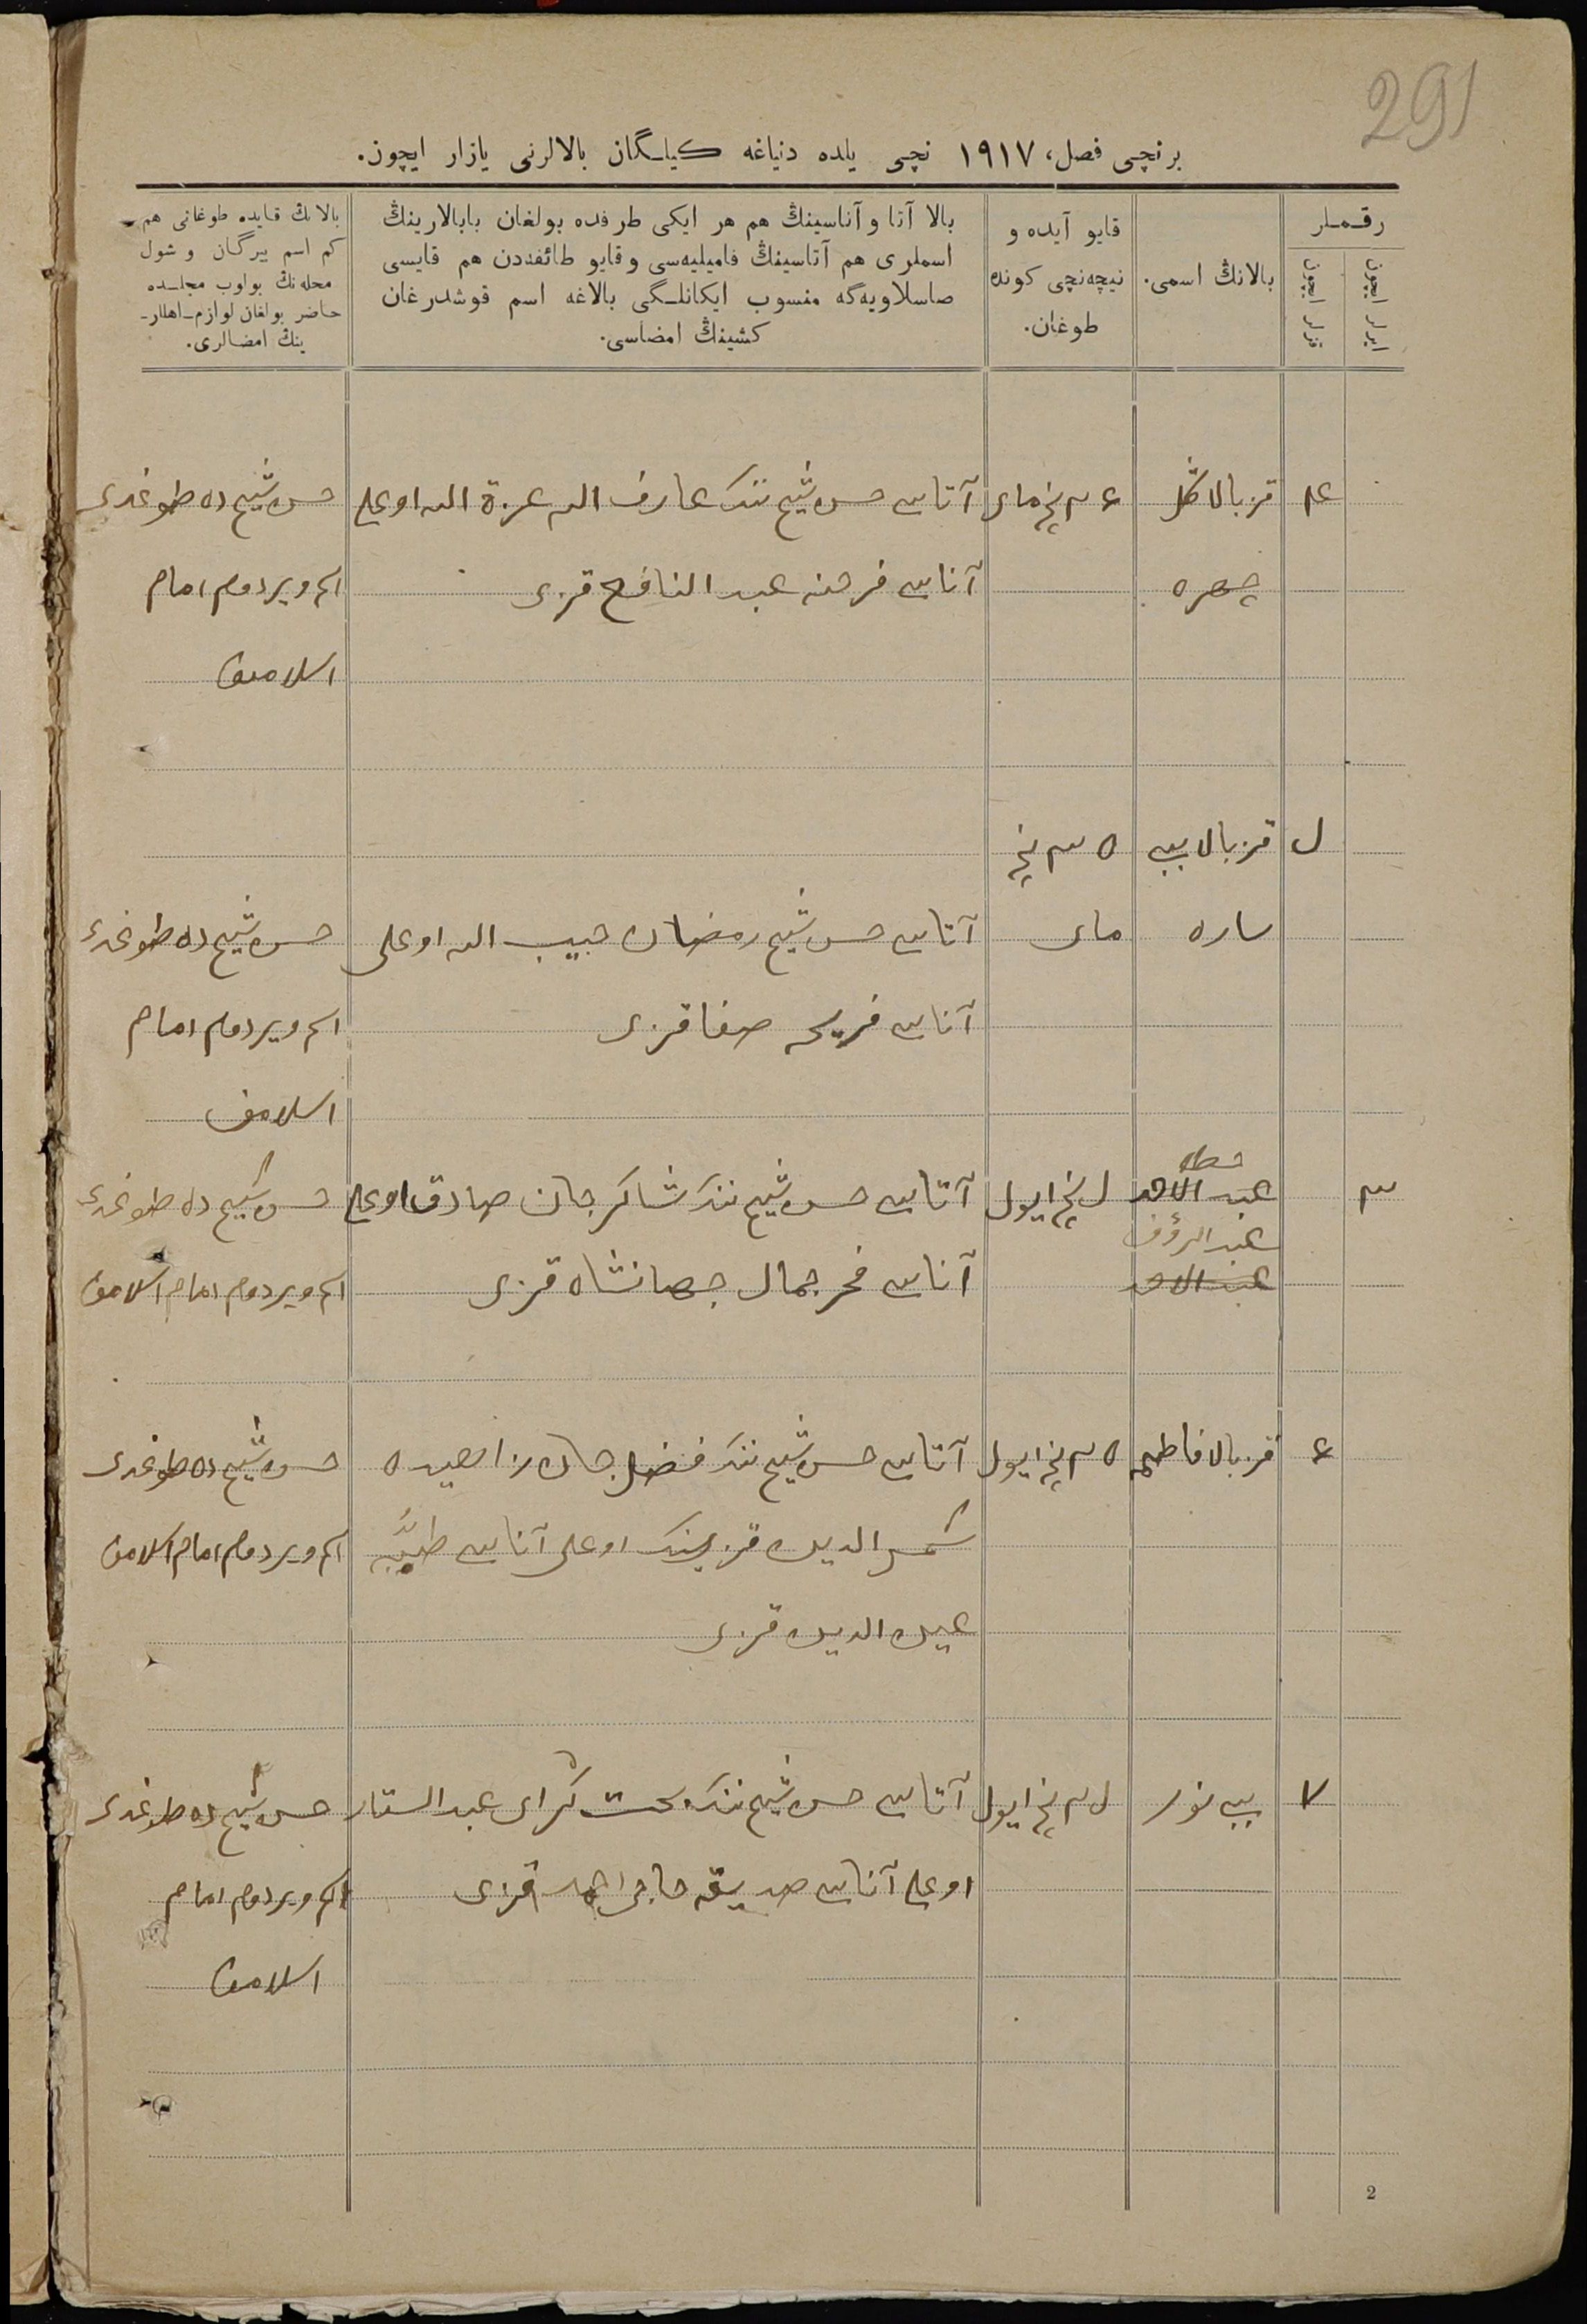 291
برنچی فصل، ١٩١٧ نچی یلده دنیاغه کیلـگان بالالرنی یازار ایچون.
رقـملر
ایرلر ایچون
قزلر ایچون
بالانڭ اسمی.
قایو آیده و
نیچه‌نچی کونده
طوغان.
بالا آتا و آناسینڭ هم هر ایکی طرفده بولغان بابالارینڭ
اسملری هم آتاسینڭ فامیلیه‌سی و قایو طائفه‌دن هم قایسی
صاسلاویه‌گه منسوب ایکانلـگی بالاغه اسم قوشدرغان
کشینڭ امضاسی.
بالانڭ قایده طوغانی هم
کم اسم بیرگان و شول
محله‌نڭ بولوب مجلـسده
حاضر بولغان لوازم اهللار
ینڭ امضالری.
قز بالا گل
نچی مای
آتاسی حسن شیخ ننک عارف الله عزة الله اوغلی
حسن شیخ ده طوغدی
چهره
آناسی فرحنه عبد النافع قزی
اسم ویردم امام
اسلاموف
قز بالا بیبی
نچی
ساره
مای
آتاسی حسن شیخ رمضان حبیب الله اوغلی
حسن شیخ ده طوغدی
آناسی فریحه صفا قزی
اسم ویردم امام
اسلاموف
خطا
٣
عبد الاحد
نچی ایول
آتاسی حسن شیخ ننک شاکرجان صادق اوغلی
حسن شیخ ده طوغدی
عبد الرؤف
عبد الاحد
آناسی فخر جمال جهانشاه قزی
اسم ویردم امام اسلاموف
قز بالا فاطمه
نچی ایول
آتاسی حسن شیخ ننک فضل جان زاهیده
حسن شیخ ده طوغدی
شمس الدین قزینک اوغلی آناسی طیبه
اسم ویردم امام اسلاموف
عین الدین قزی
٧
بیبی نور
نچی ایول
آتاسی حسن شیخ ننک بخت گرای عبد الستار
حسن شیخ ده طوغدی
اوغلی آناسی صدیقه حاجی احمد قزی
اسم ویردم امام
اسلاموف
2